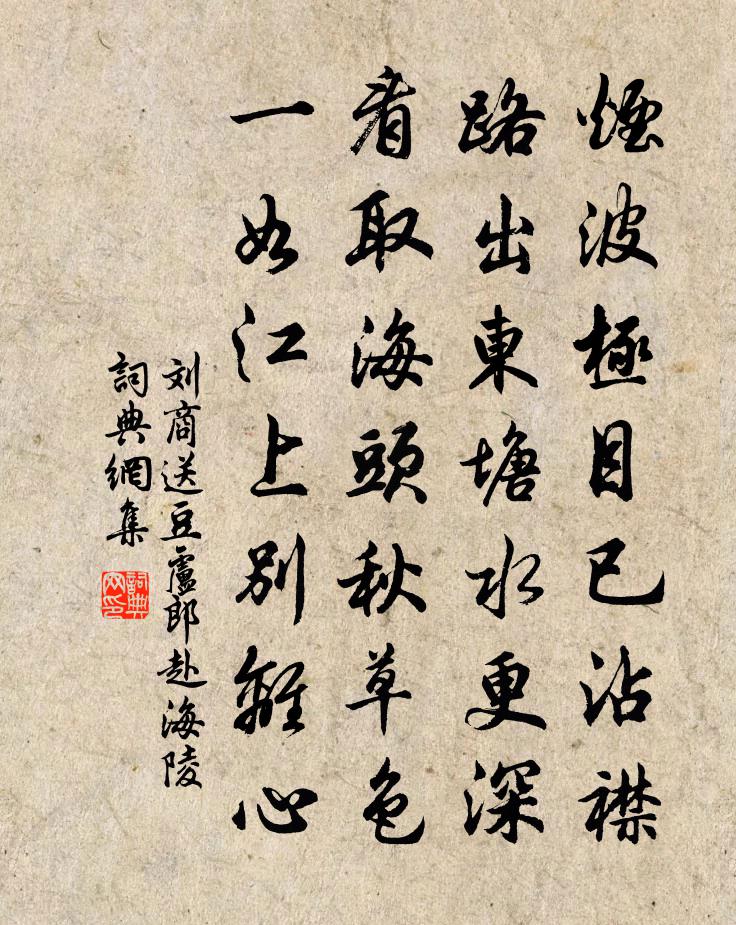 煙波極目已沾襟
路出東塘水更深
看取海頭秋草色
一如江上別離心
刘商送豆盧郎赴海陵
詞典網集
詞典
网印